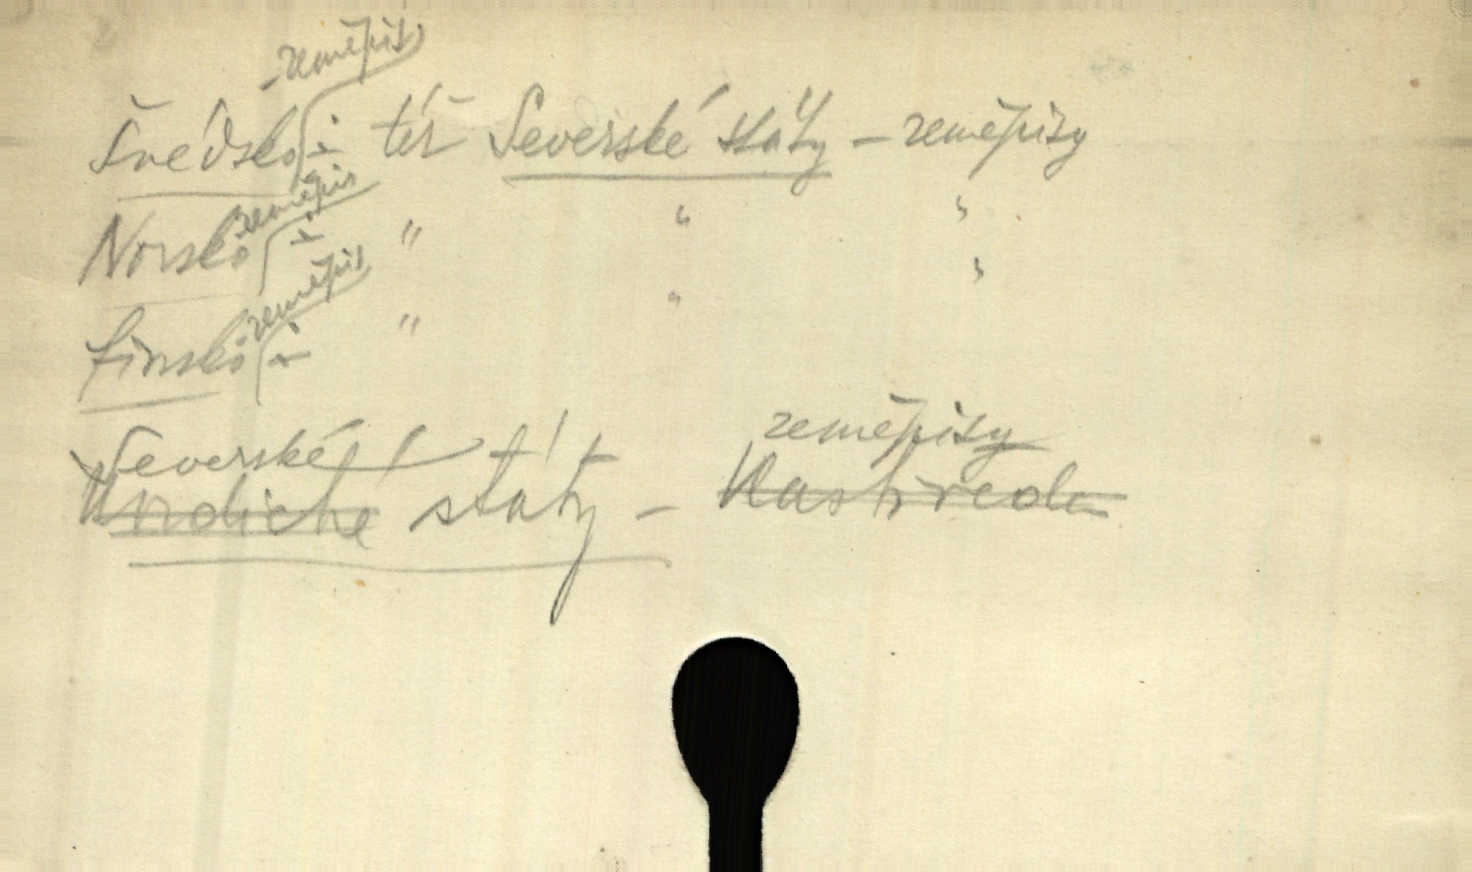 Švédsko - zeměpis viz též Severské státy - zeměpisy
Norsko zeměpis " " "
Finsko zeměpis " " "
Severské zeměpisy
státy -